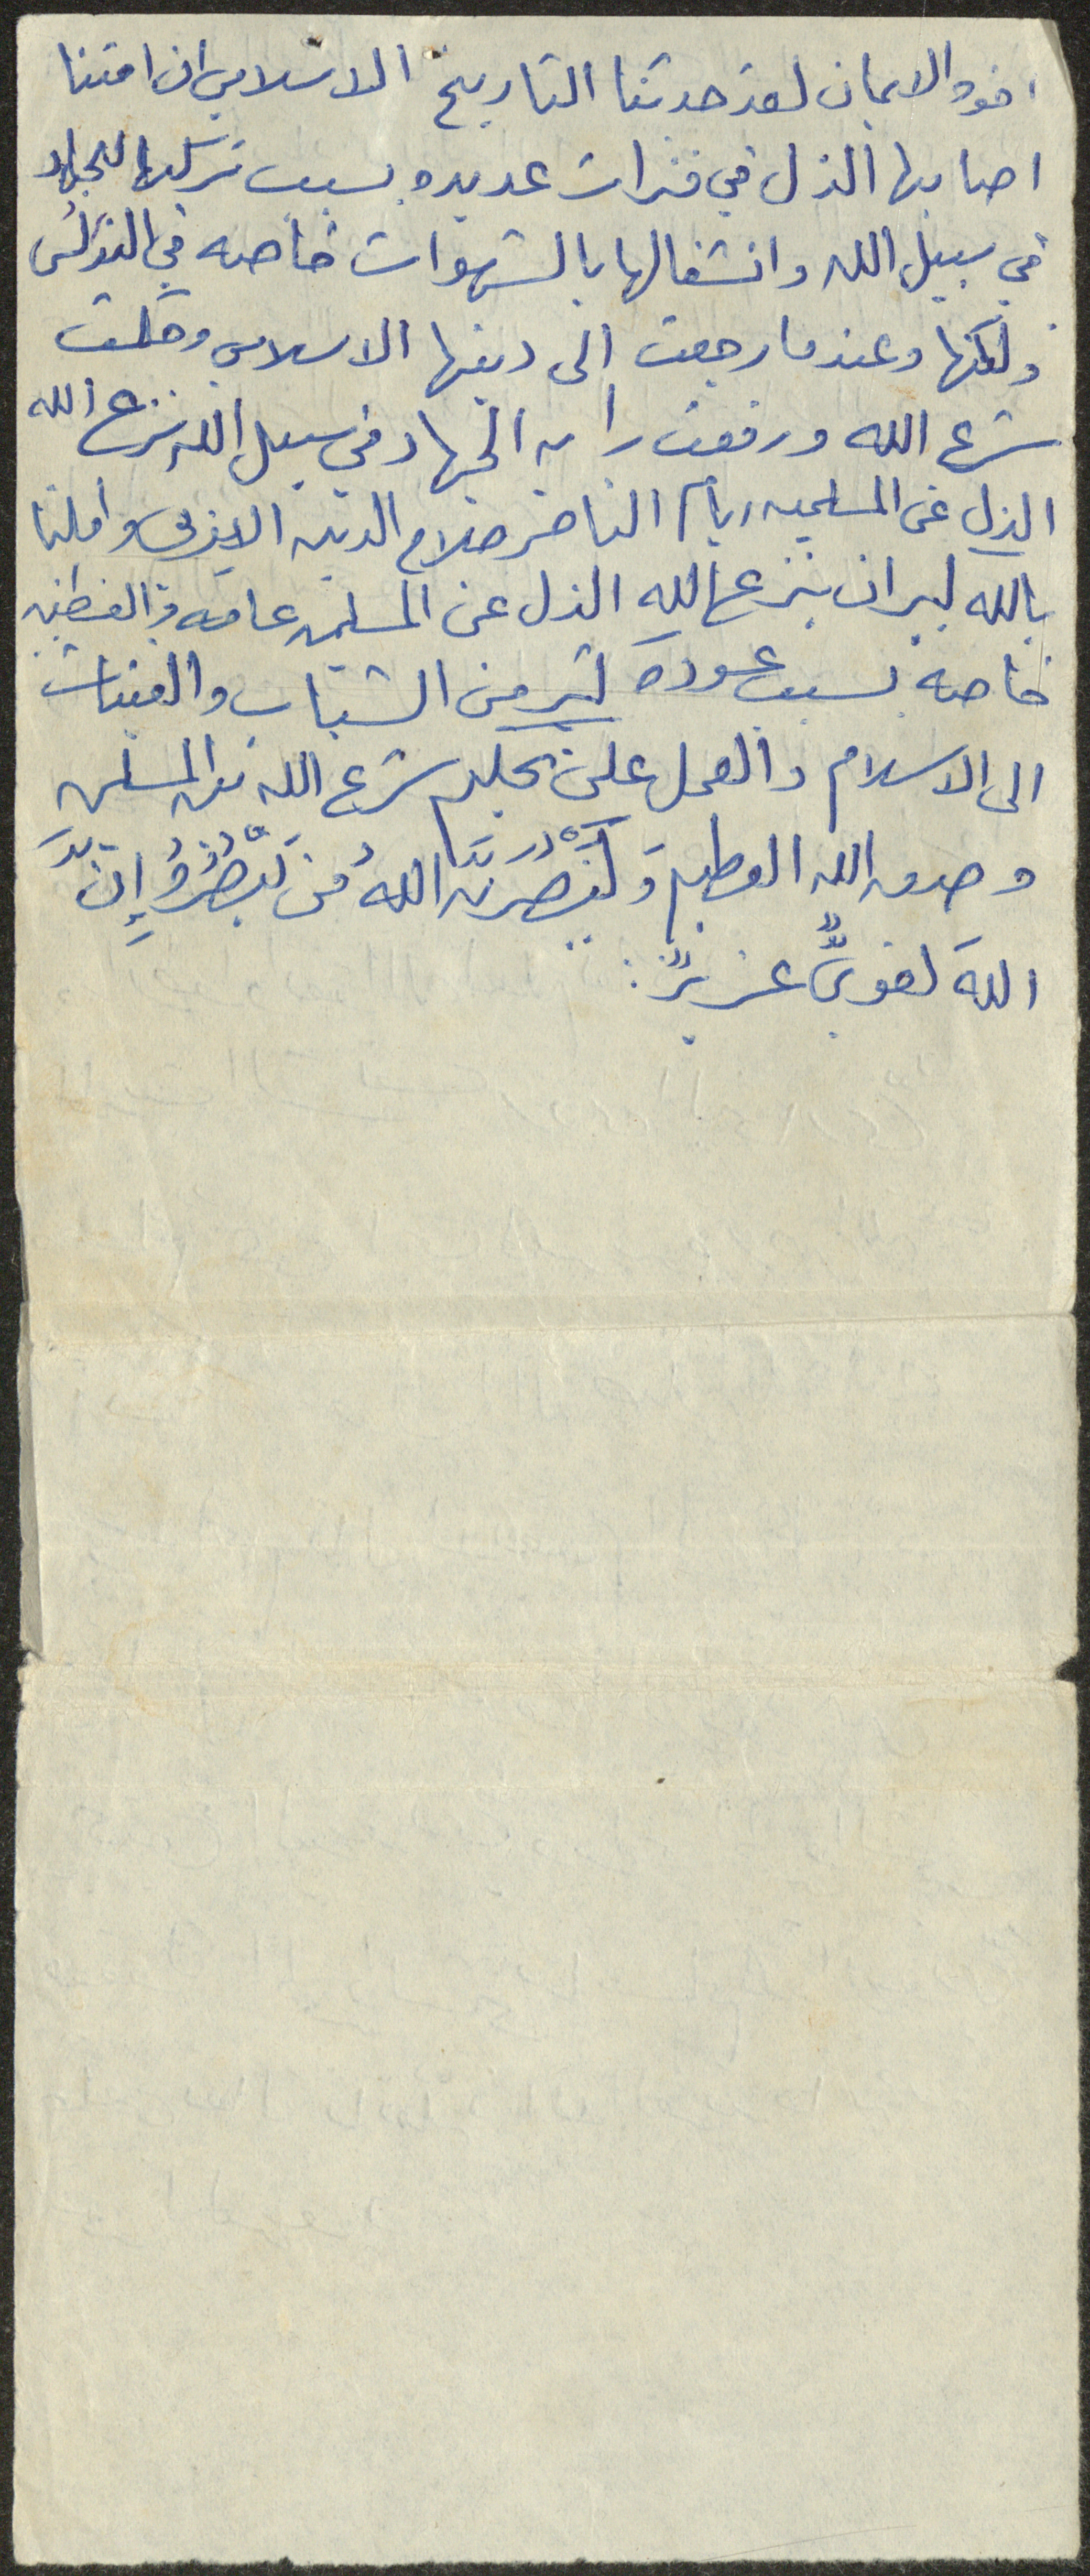 اخوه الايمان لقد حدثنا التاريخ الاسلامي ان امتنا
اصابها الذل في فترات عديده بسبب تركها للجهاد
في سبيل الله وانشغالها بالشهوات خاصه في الاندلس
ولكنها وعندما رجعت الى دينها الاسلامي وحكمت
شرع الله ورفعت رايه الجهاد في سبيل الله نزع الله
الذل عن المسلمين ايام الناصر صلاح الدين الايوبي واملنا
بالله كبير ان ينزع الله الذل عن المسلمين عامه والفلسطينين
خاصه بسبب عودة كثير من الشباب والفتيات
الى الاسلام والعمل على تحكيم شرع الله بين المسلمين
وصدق الله العظيم وَلَيَنْصُرَنَّ اللهُ مَن يَنْصُرُهُ إِنَّ
اللهَ لقويٌّ عزيزٌ :